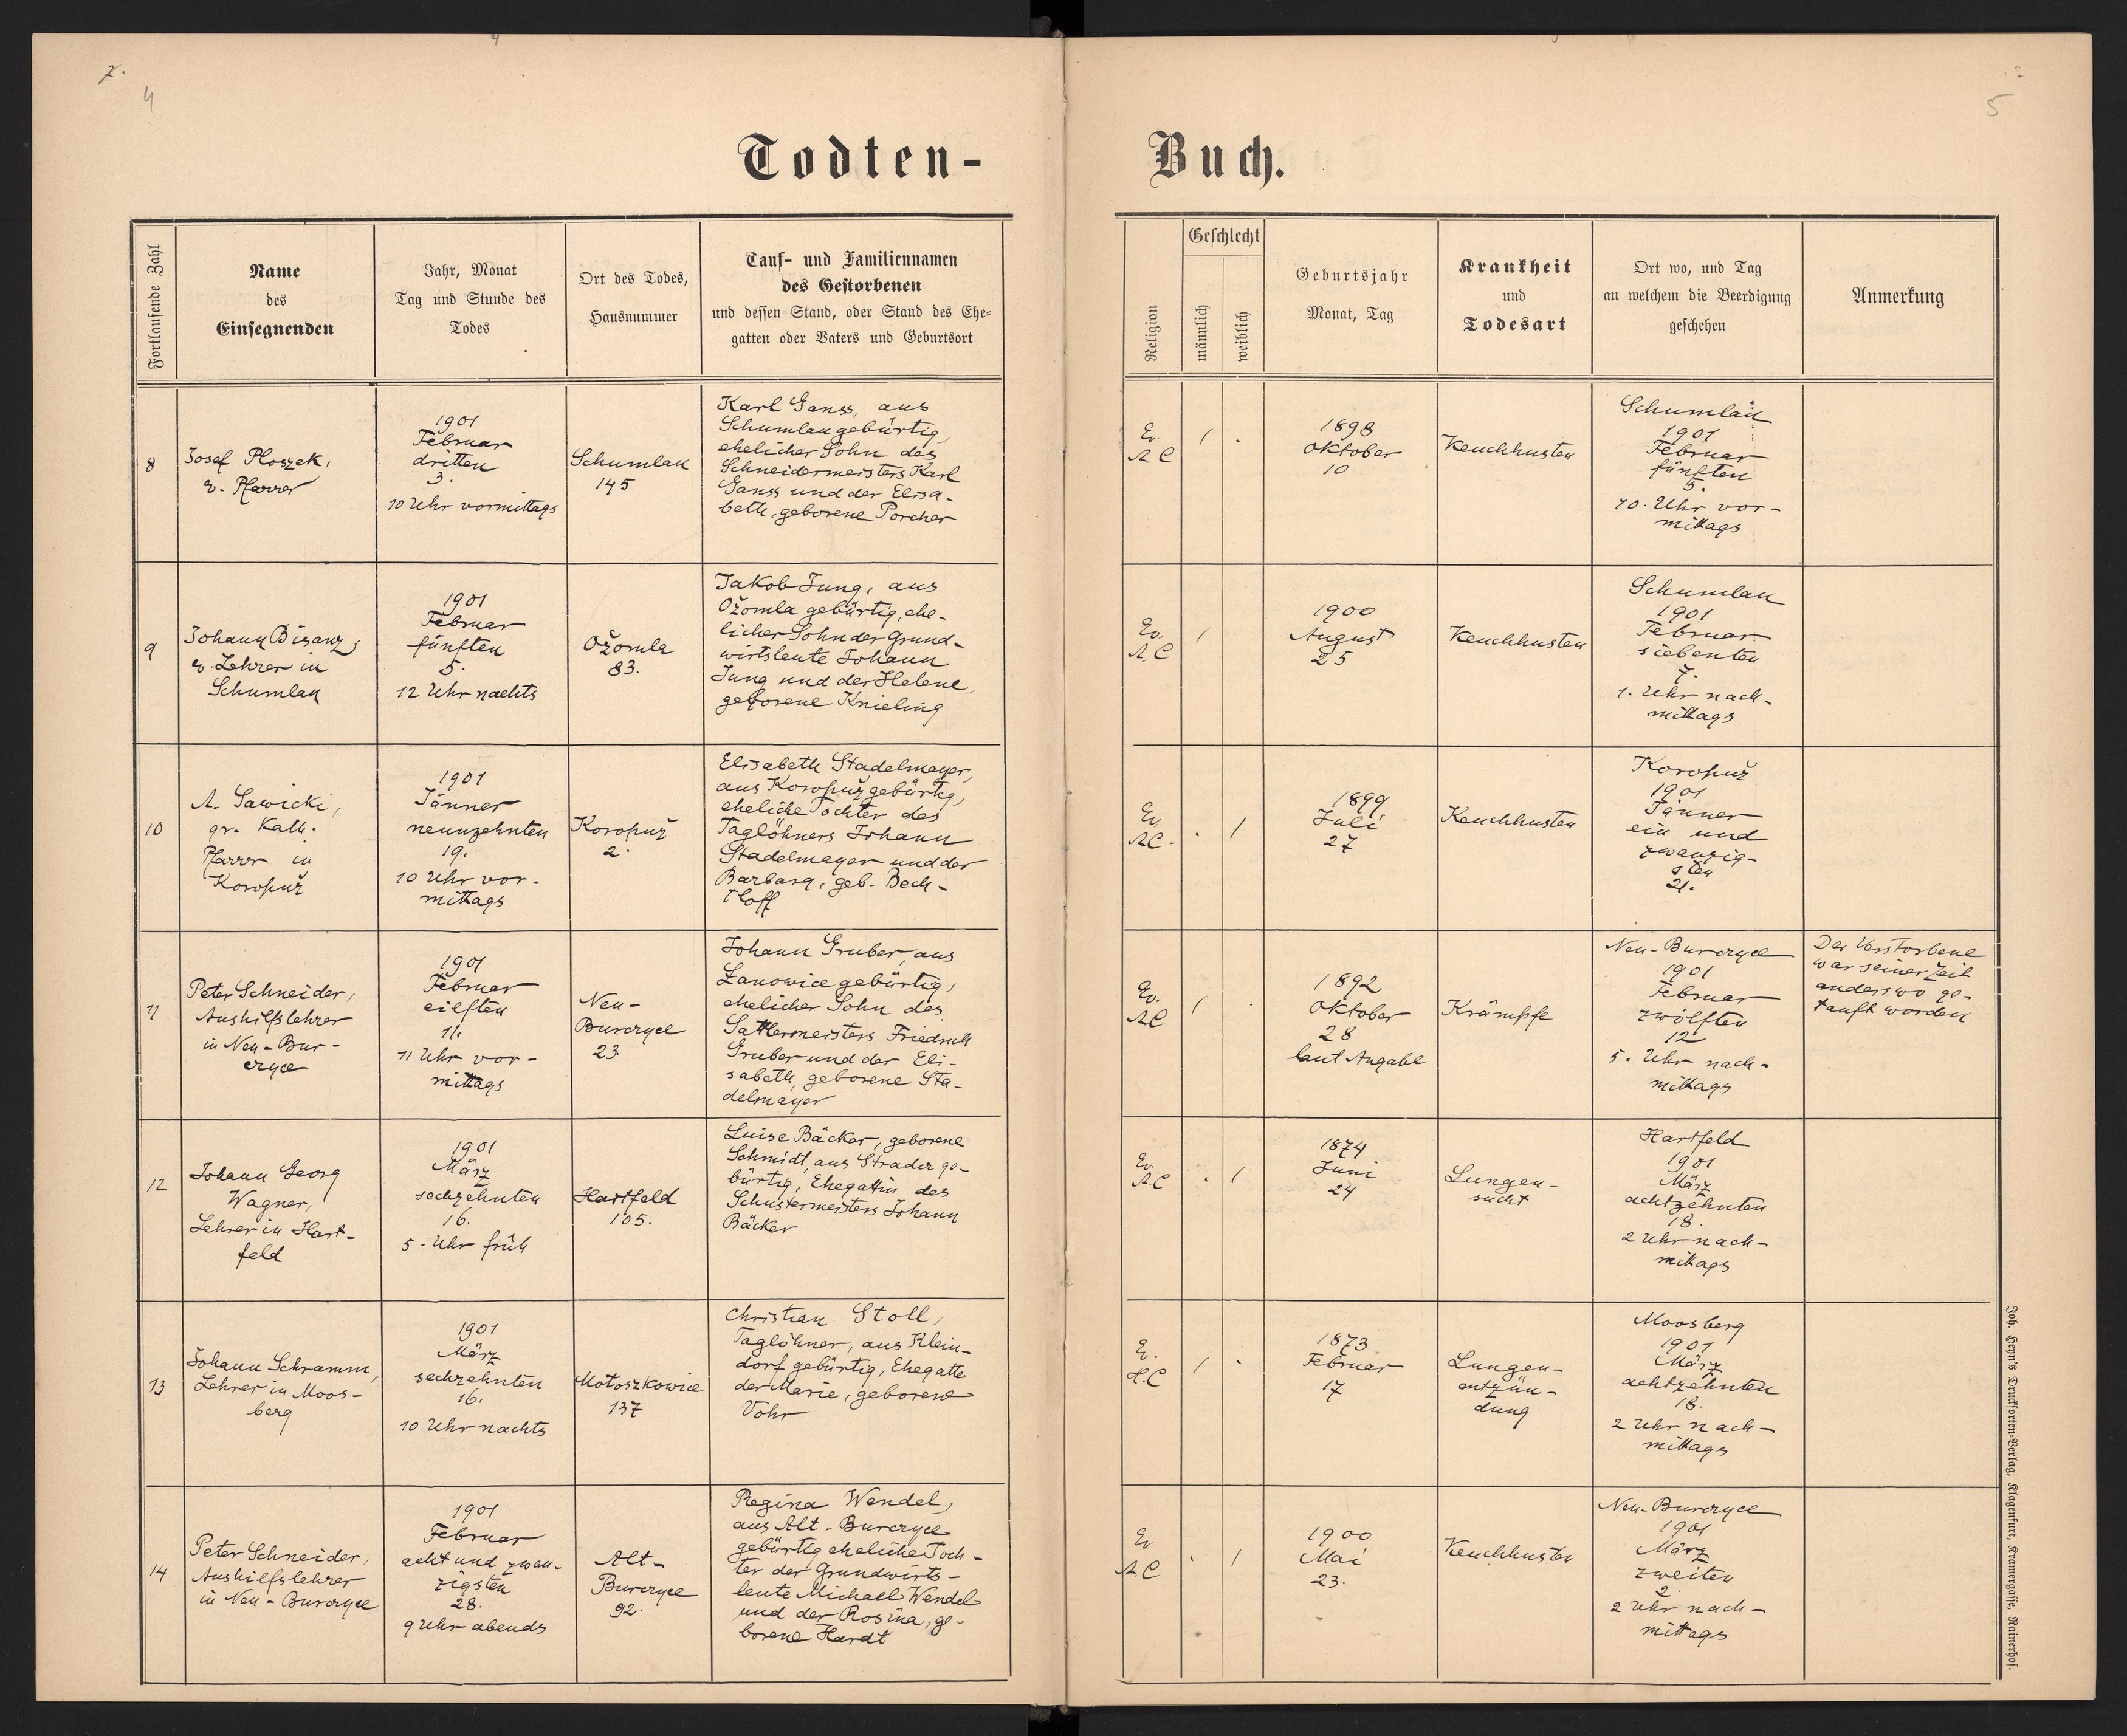 7.
4
5
Todten-
Buch.
Fortlaufende Zahl
Name
des
Einsegnenden
Jahr, Monat
Tag und Stunde des
Todes
Ort des Todes,
Hausnummer
Tauf- und Familiennamen
des Gestorbenen
und dessen Stand, oder Stand des Ehe-
gatten oder Vaters und Geburtsort
Religion
Geschlecht
männlich
weiblich
Geburtsjahr
Monat, Tag
Krankheit
und
Todesart
Ort wo, und Tag
an welchem die Beerdigung
geschehen
Anmerkung
8
Josef Ploszek,
ev. Pfarrer
1901
Februar
dritten
3.
10 Uhr vormittags
Schumlau
145
Karl Ganss, aus
Schumlau gebürtig,
ehelicher Sohn des
Schneidermeisters Karl
Ganss und der Elisa-
beth, geborene Porcher
Ev.
A C
/ .
1898
Oktober
10
Keuchhusten
Schumlau
1901
Februar
fünften
5.
10. Uhr vor-
mittags
9
Johann Bisanz,
ev. Lehrer in
Schumlau
1901
Februar
fünften
5.
12 Uhr nachts
Ožomla
83.
Jakob Jung, aus
Ožomla gebürtig, ehe-
licher Sohn der Grund-
wirtsleute Johann
Jung und der Helene,
geborene Knieling
Ev.
A. C
/ .
1900
August
25
Keuchhusten
Schumlau
1901
Februar
siebenten
7.
1. Uhr nach-
mittags
10
A. Sawicki,
gr. Kath.
Pfarrer in
Koropuž
1901
Jänner
neunzehnten
19.
10 Uhr vor-
mittags
Koropuž
2.
Elisabeth Stadelmayer,
aus Koropuž gebürtig,
eheliche Tochter des
Taglöhners Johann
Stadelmayer und der
Barbara, geb. Bech-
tloff
Ev.
A C.
. /
1899
Juli
27
Keuchhusten
Koropuž
1901
Jänner
ein und
zwanzig-
sten
21.
11
Peter Schneider,
Aushilfslehrer
in Neu-Bur-
czyce
1901
Februar
eilften
11.
11 Uhr vor-
mittags
Neu-
Burczyce
23.
Johann Gruber, aus
Łanowice gebürtig,
ehelicher Sohn des
Sattlermeisters Friedrich
Gruber und der Eli-
sabeth, geborene Sta-
delmayer
Ev.
A C
/ .
1892
Oktober
28
laut Angabe
Krämpfe
Neu-Burczyce
1901
Februar
zwölften
12
5. Uhr nach-
mittags
Der Verstorbene
war seiner Zeit
anderswo ge-
tauft worden
12
Johann Georg
Wagner,
Lehrer in Hart-
feld
1901
März
sechzehnten
16.
5. Uhr früh
Hartfeld
105.
Luise Bäcker, geborene
Schmidt, aus Stradez ge-
bürtig, Ehegattin des
Schustermeisters Johann
Bäcker
Ev.
A C
. /
1874
Juni
24
Lungen-
sucht
Hartfeld
1901
März
achtzehnten
18.
2 Uhr nach-
mittags
13
Johann Schramm,
Lehrer in Moos-
berg
1901
März
sechzehnten
16.
10 Uhr nachts
Mołoszkowice
137
Christian Stoll,
Taglöhner, aus Klein-
dorf gebürtig, Ehegatte
der Marie, geborene
Vohr
Ev.
H. C
/ .
1873
Februar
17
Lungen-
entzün-
dung
Moosberg
1901
März
achtzehnten
18.
2 Uhr nach-
mittags
14
Peter Schneider,
Aushilfslehrer
in Neu-Burczyce
1901
Februar
acht und zwan-
zigsten
28.
9 Uhr abends
Alt-
Burczyce
92.
Regina Wendel,
aus Alt-Burczyce
gebürtig eheliche Toch-
ter der Grundwirts-
leute Michael Wendel
und der Rosina, ge-
borene Hardt
Ev
A C
. /
1900
Mai
23.
Keuchhusten
Neu-Burczyce
1901
März
zweiten
2.
2 Uhr nach-
mittags
Joh. Heyn's Drucksorten-Verlag, Klagenfurt, Kramergasse, Rainerhof.